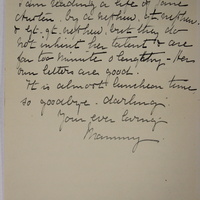 I am reading a life of Jane
Austen, by a nephew, gt nephew,
& gt. gt. nephew, but they do
not inherit her talent & are
far too minute & lengthy - Her
own letters are good.
It is almost luncheon time
so goodbye - darling.
Your ever loving
Mammy